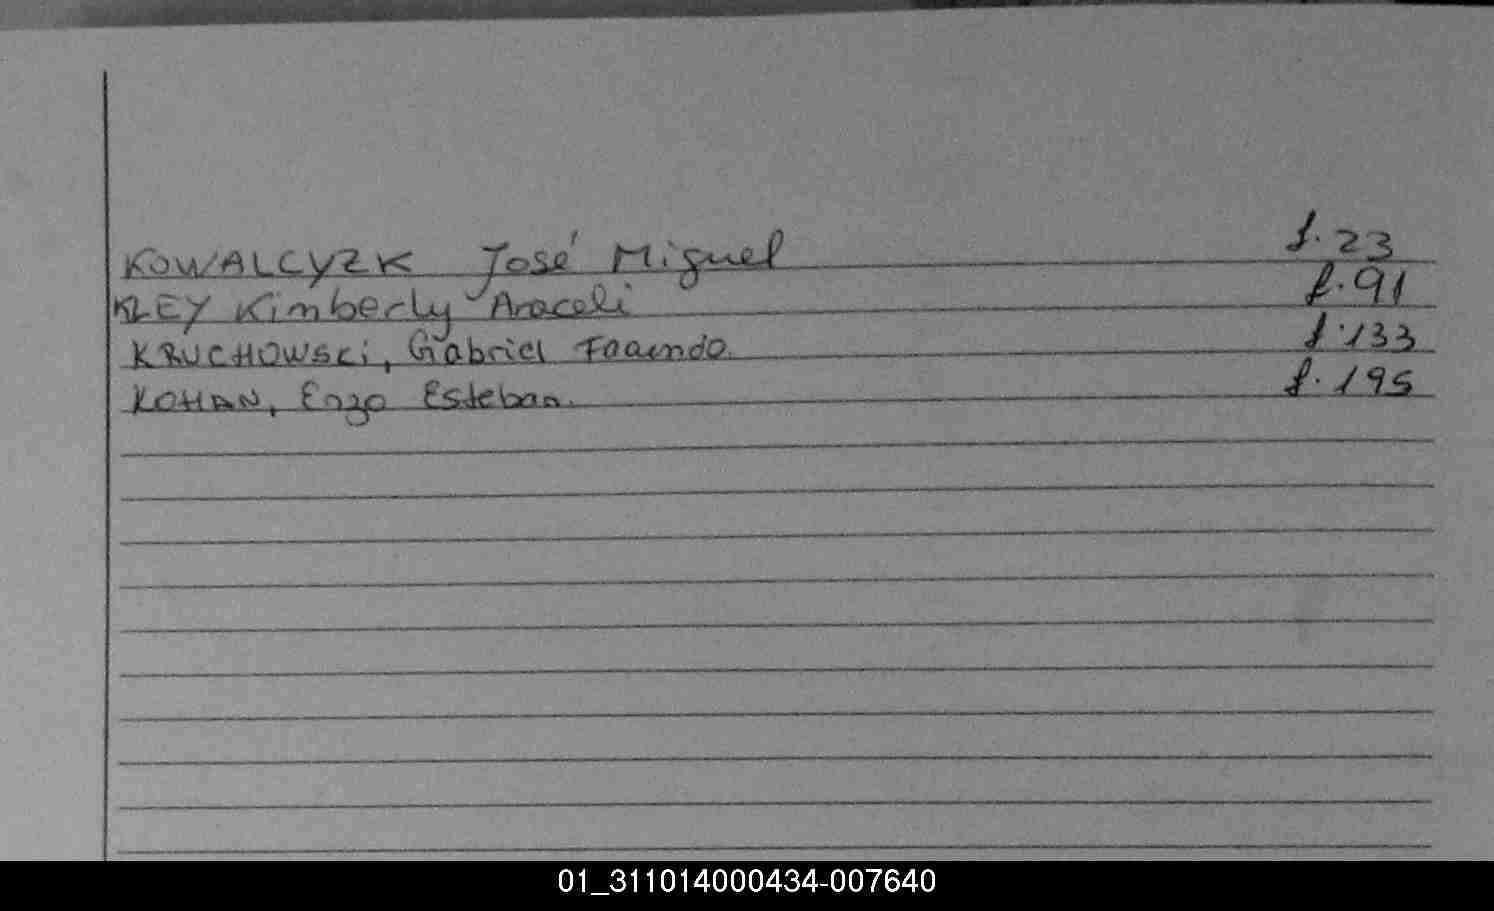 KOWALCYZK José Miguel f. 23
KLEY Kimberly Araceli f. 91
KRUCHOWSKi, Gabriel Facundo. f. 133
KOHAN, Enzo Esteban. f. 195
01_311014000434-007640